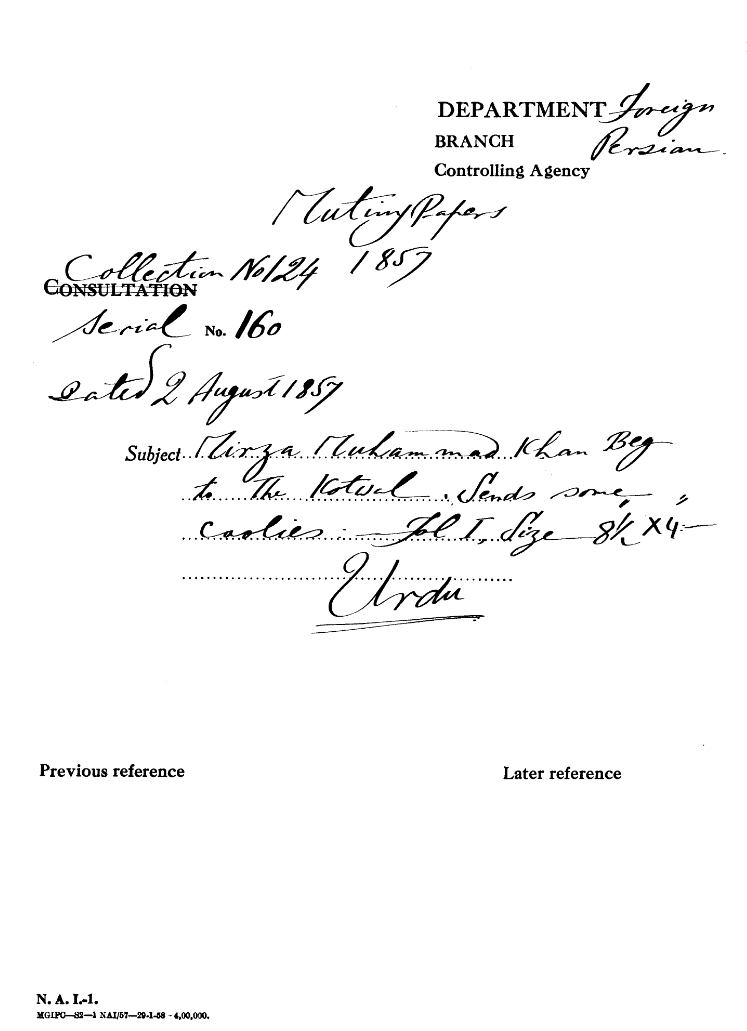 DEPARTMENT Foreign
BRANCH Persian.
Controlling Agency
Mutiny Papers
Collection No 124 1857
CONSULTATION
Serial No. 160
Dated 2 August 1857
Subject Mirza Muhammad Khan Beg
to The Kotwal. Sends some
coolies:— Fol I, Size 8½ X4:—
Urdu
Previous reference Later reference
N. A. I.-1.
MGIPC—S2—1 NAI/57—29-1-58 - 4,00,000.